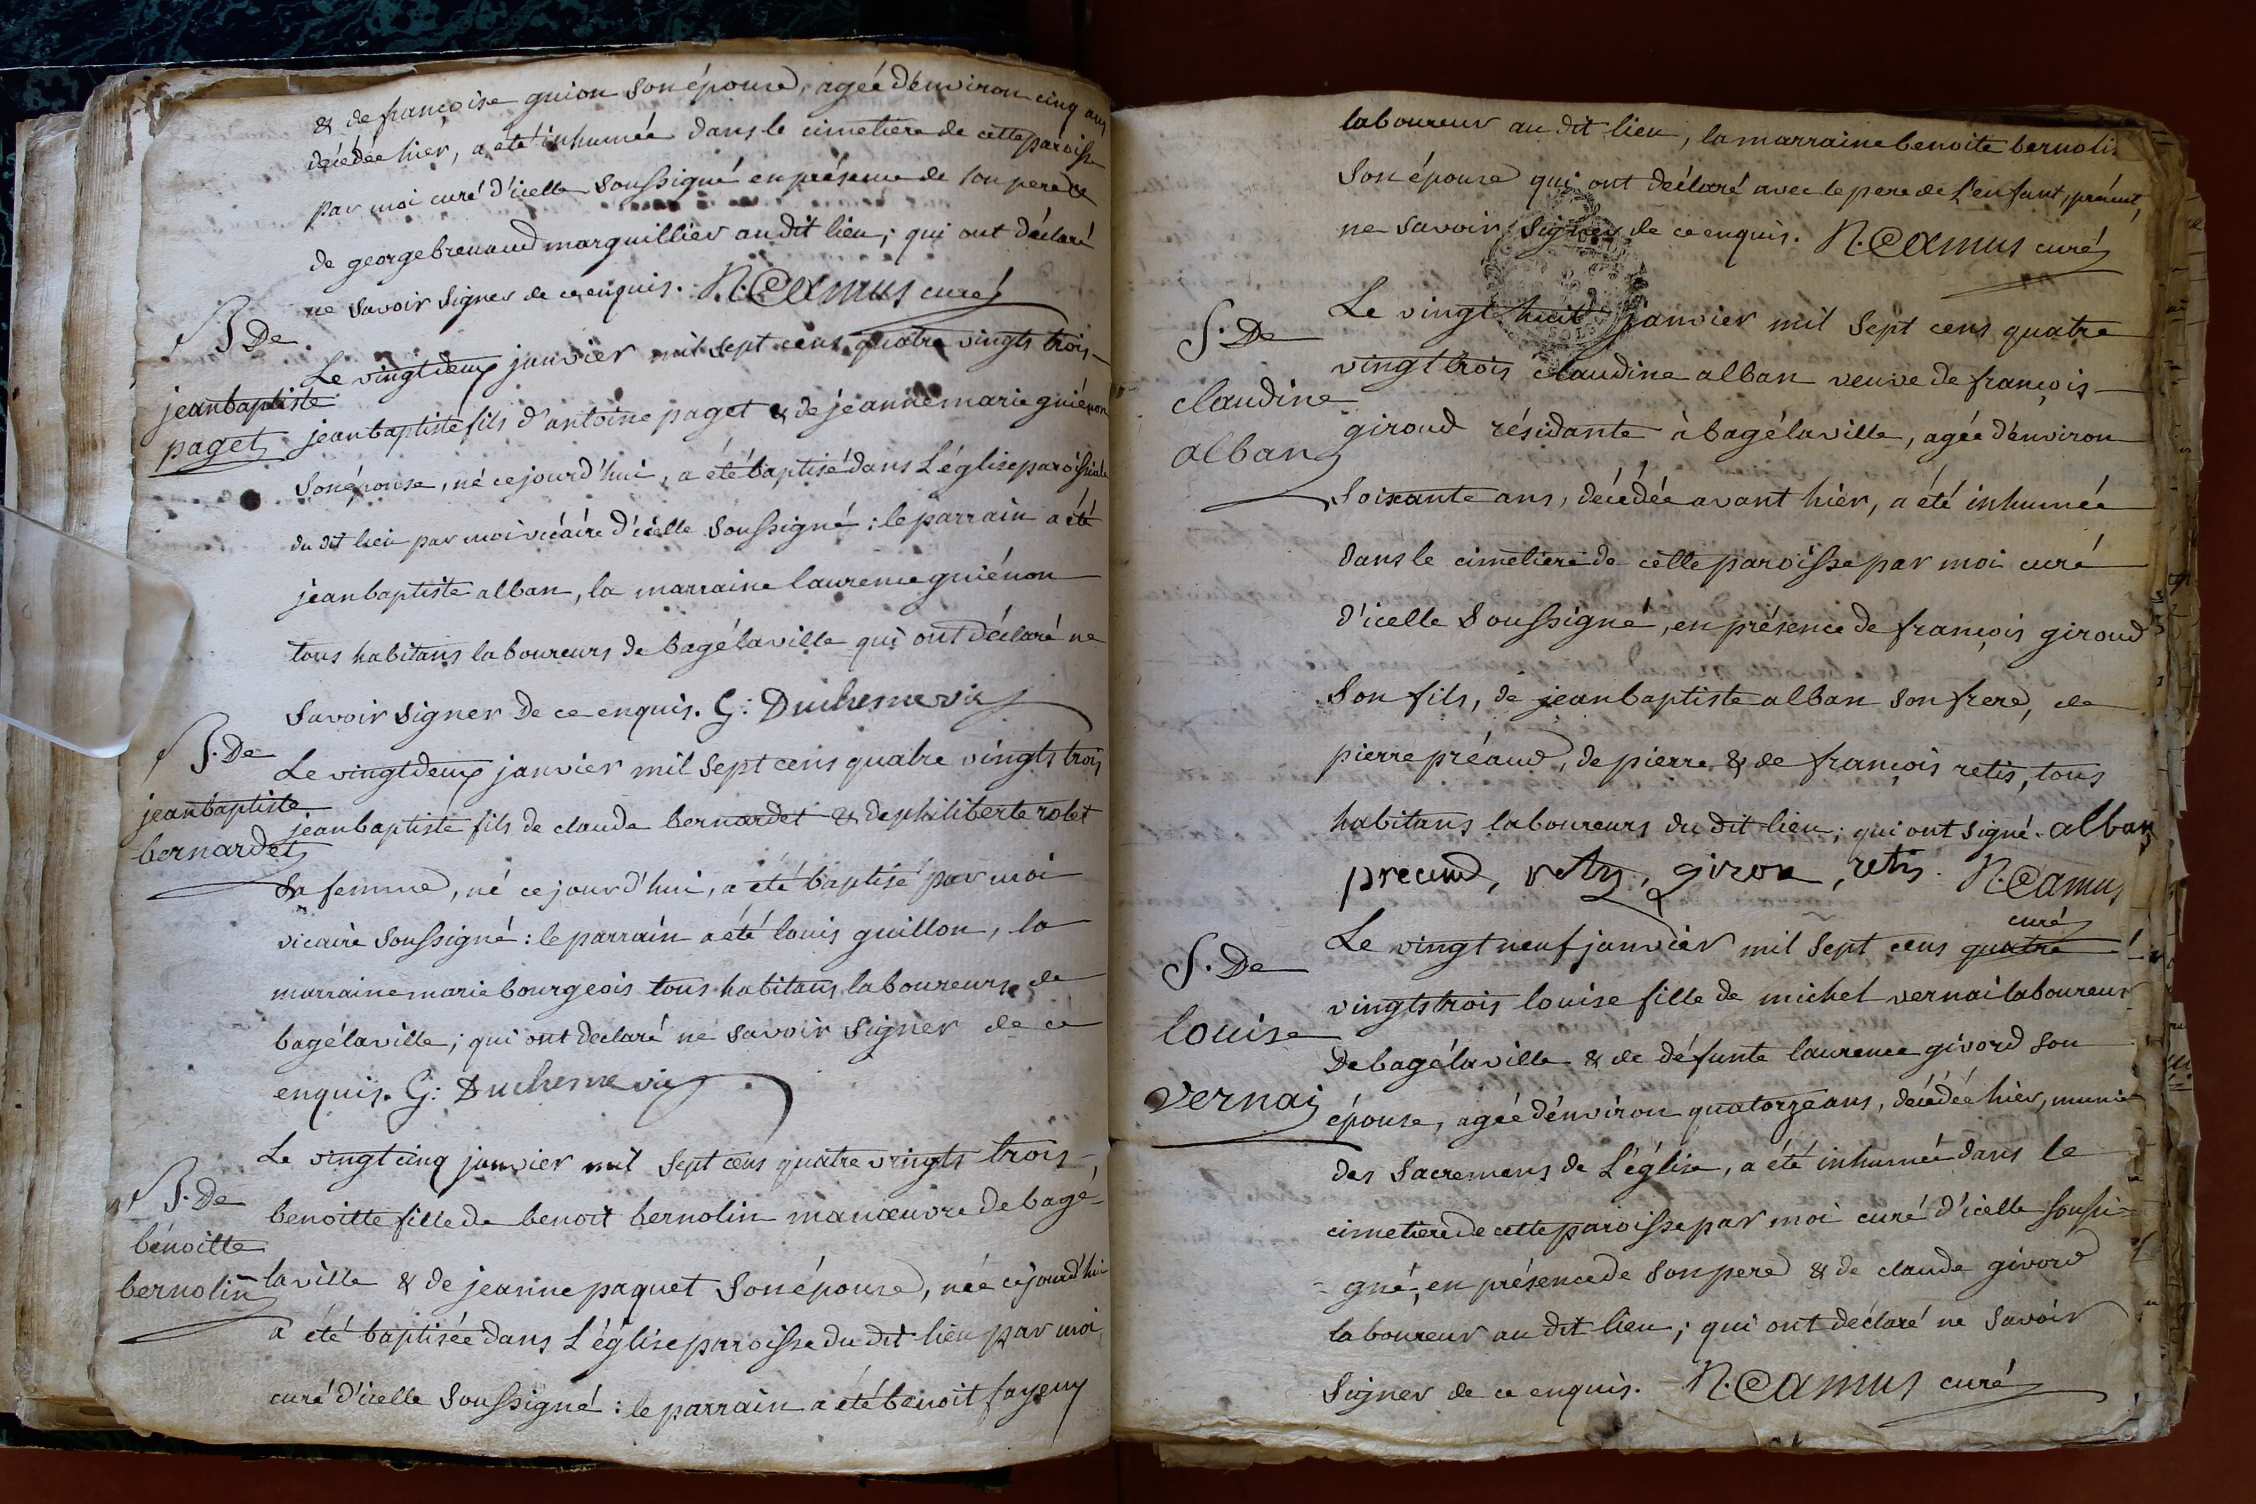 & de françoise guion son épouse, agée d'environ cinq ans
décédée hier, a été inhumée dans le cimetiere de cette paroisse
par moi curé d'icelle soussigné en présence de son pere &
de george brenaud marguillier au dit lieu; qui ont déclaré
ne savoir signer de ce enquis. N. Camus curé
B. De
jean baptiste
paget
Le vingt deux janvier mil sept cens quatre vingts trois
jean baptiste fils d'antoine paget & de jeanne marie guiénon
son épouse, né ce jourd'hui, a été baptisé dans l'église paroissiale
du dit lieu par moi vicaire d'icelle soussigné: le parrain a été
jean baptiste alban, la marraine laurence guiénon
tous habitans laboureurs de bagé la ville qui ont déclaré ne
savoir signer de ce enquis. G: Duchesne vic
B. De
jean baptiste
bernardet
Le vingt deux janvier mil sept cens quatre vingts trois
jean baptiste fils de claude bernardet & de philiberte robet
sa femme, né ce jourd'hui, a été baptisé par moi
vicaire soussigné: le parrain a été louis guillon, la
marraine marie bourgeois tous habitans laboureurs de
bagé la ville; qui ont declaré ne savoir signer de ce
enquis. G: Duchesne vic
B. De
benoitte
bernolin
Le vingt cinq janvier mil sept cens quatre vingts trois,
benoitte fille de benoit bernolin manœuvre de bagé
la ville & de jeanne paquet son épouse, née ce jourd'hui
a été baptisée dans l'église paroisse du dit lieu par moi
curé d'icelle soussigné: le parrain a été benoit fayeux
laboureur au dit lieu, la marraine benoite bernolin
son épouse qui ont déclaré avec le pere de l'enfant, présent,
ne savoir signer de ce enquis. N. Camus curé
S. De
claudine
alban
Le vingt huit janvier mil sept cens quatre
vingt trois claudine alban veuve de françois
giroud résidante à bagé la ville, agée d'environ
soixante ans, décédée avant hier, a été inhumée
dans le cimetiere de cette paroisse par moi curé
d'icelle soussigné, en présence de françois giroud
son fils, de jean baptiste alban son frere, de
pierre préaud, de pierre & de françois retis, tous
habitans laboureurs du dit lieu; qui ont signé. alban
preaud, retis, girou, retis. N. Camus
curé
S. De
louise
vernai
Le vingt neuf janvier mil sept cens quatre
vingts trois louise fille de michel vernai laboureur
de bagé la ville & de défunte laurence givord son
épouse, agée d'environ quatorze ans, décédée hier, munie
des sacremens de l'église, a été inhumée dans le
cimetiere de cette paroisse par moi curé d'icelle soussi-
-gné, en présence de son pere & de claude givord
laboureur au dit lieu; qui ont déclaré ne savoir
signer de ce enquis. N. Camus curé